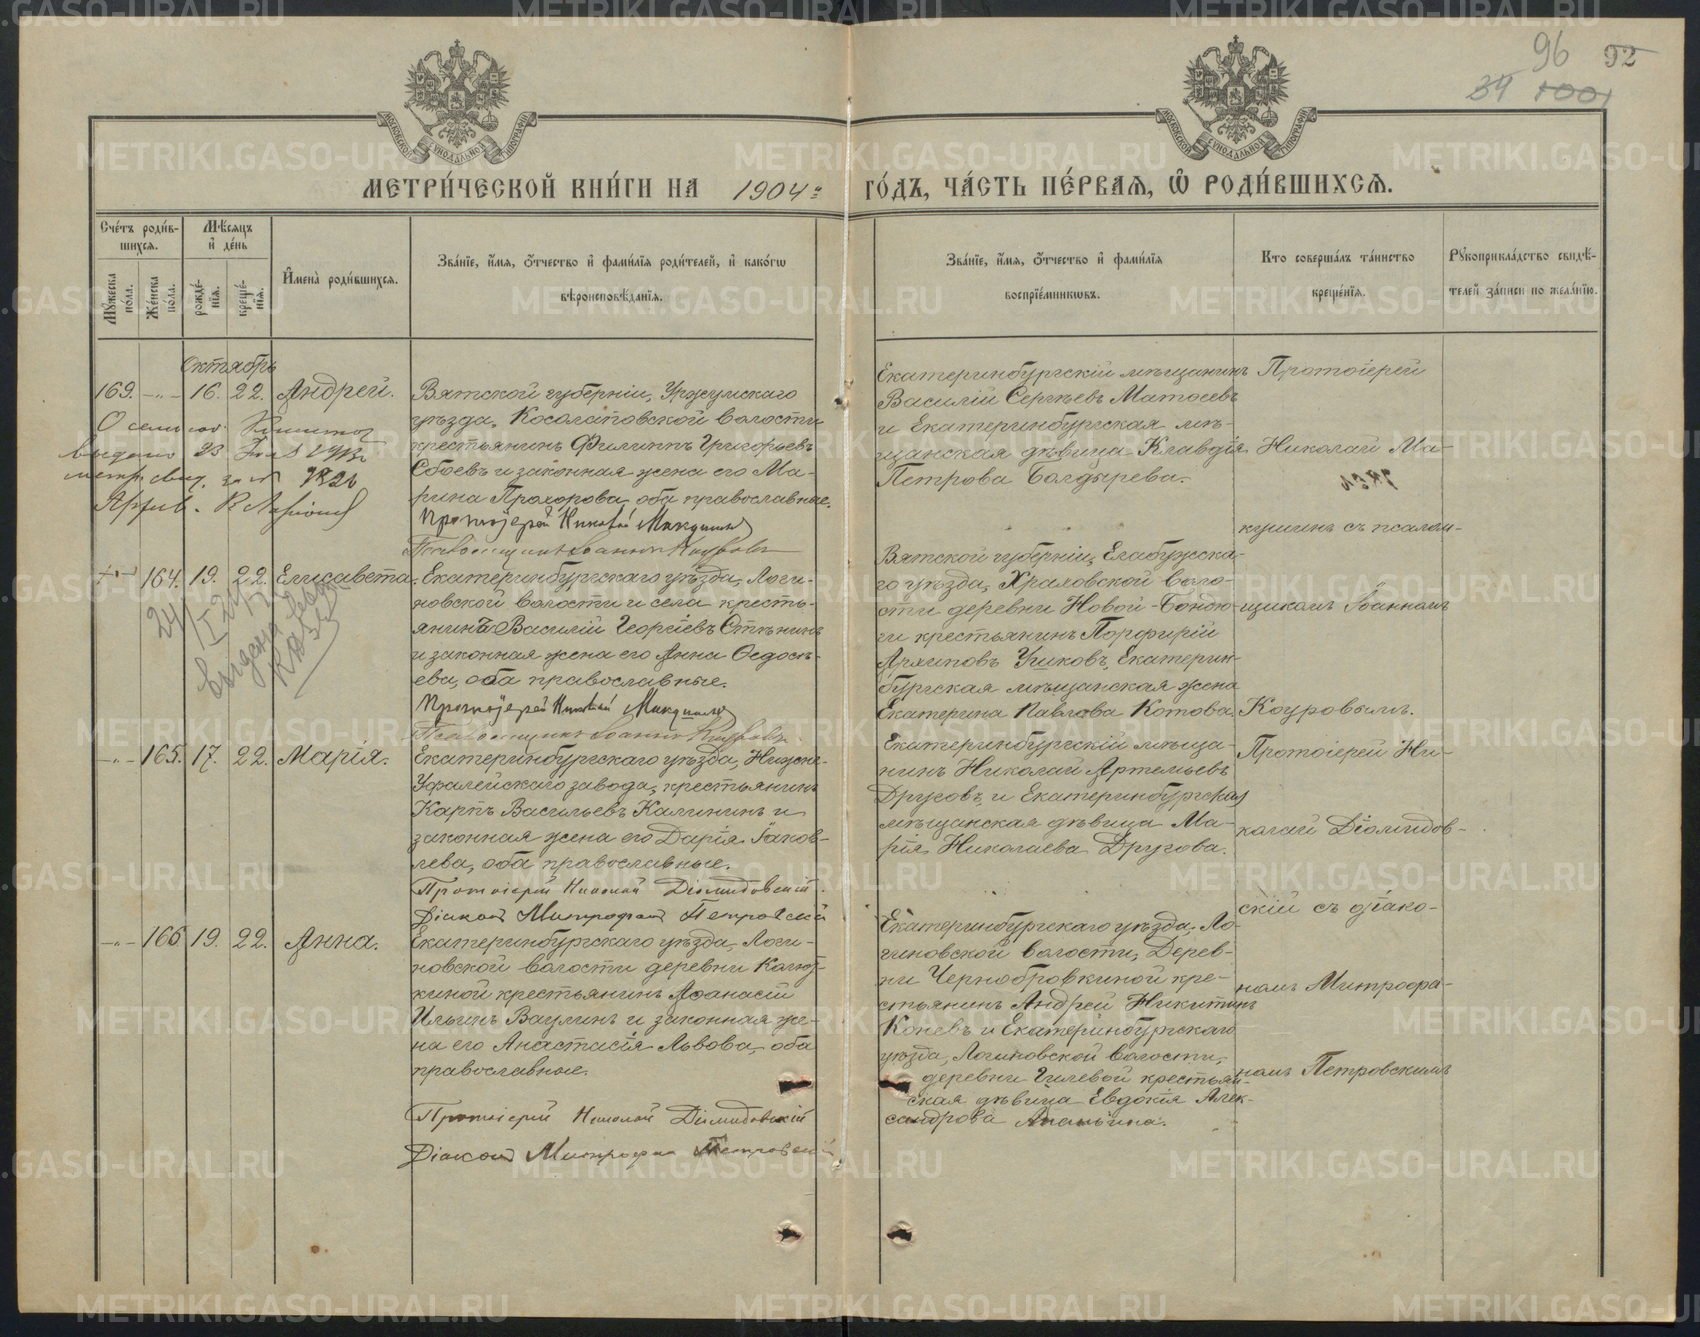 96 92
34 1001
МЕТРИ́ЧЕСКОЙ КНИ́ГИ НА 1904 го́дъ, ча́сть пе́рвая, ѡ҆ роди́вшихсѧ.
Сче́тъ роди́в-
шихсѧ.
Мѣ́сѧцъ
и҆ де́нь
Мꙋ́жеска
по́ла.
Же́нска
по́ла.
рожде́-
нїѧ.
креще́-
нїѧ.
И҆мена̀ роди́вшихсѧ.
Зва́нїе, и҆́мѧ, ѻ҆́тчество и҆ фами́лїѧ роди́телей, и҆ како́гѡ
вѣроисповѣ́данїѧ.
Зва́нїе, и҆́мѧ, ѻ҆́тчество и҆ фами́лїѧ
воспрїе́мникѡвъ.
Кто соверша́лъ та́инство
креще́нїѧ.
Рꙋкоприкла́дство свидѣ́-
телей за́писи по жела́нїю.
Октябрь
169. -„- 16. 22. Андрей.
Вятской губерніи, Уржумскаго
уѣзда, Косолаповской волости
крестьянинъ Филиппъ Григорьевъ
Сбоевъ и законная жена его Ма-
рина Прохорова, оба православные.
Протоіерей Николай
Псаломщикъ Іоаннъ Коуровъ
Екатеринбургскій мѣщанинъ
Василій Сергѣевъ Матосевъ
и Екатеринбургская мѣ-
щанская дѣвица Клавдія
Петрова Болдырева.
Протоіерей
Николай Ма-
кушинъ съ псалом-
щикомъ Іоанномъ
Коуровымъ.
выдано 23
метр. свид. за № 1826
164. 19. 22. Елисавета.
Екатеринбургскаго уѣзда, Логи-
новской волости и села кресть-
янинъ Василій Георгіевъ Стѣнинъ
и законная жена его Анна Ѳедосѣ-
ева, оба православные.
Протоіерей Николай
Псаломщикъ Іоаннъ Коуровъ
Вятской губерніи, Елабужска-
го уѣзда, Храловской воло-
сти деревни Новой-Бондю-
ги крестьянинъ Порфирій
Архиповъ Ушковъ, Екатерин-
бургская мѣщанская жена
Екатерина Павлова Котова.
-„- 165. 17. 22. Марія.
Екатеринбургскаго уѣзда, Нижне-
Уфалейскаго завода, крестьянинъ
Карпъ Васильевъ Калининъ и
законная жена его Дарія Іаков-
лева, оба православные.
Протоіерей Николай Діомидовскій
Діаконъ Митрофанъ Петровскій
Екатеринбургскій мѣща-
нинъ Николай Артемьевъ
Друговъ и Екатеринбургская
мѣщанская дѣвица Ма-
рія Николаева Другова.
Протоіерей Ни-
колай Діомидов-
скій съ діако-
номъ Митрофа-
номъ Петровскимъ
-„- 166 19. 22. Анна.
Екатеринбургскаго уѣзда, Логи-
новской волости деревни Колют-
киной крестьянинъ Аѳанасій
Ильинъ Ваулинъ и законная же-
на его Анастасія Львова, оба
православные.
Протоіерей Николай Діомидовскій
Діаконъ Митрофанъ Петровскій
Екатеринбургскаго уѣзда, Ло-
гиновской волости, Дерев-
ни Чернобровкиной кре-
стьянинъ Андрей Никитинъ
Коневъ и Екатеринбургскаго
уѣзда, Логиновской волости,
деревни Гилевой крестьян-
ская дѣвица Евдокія Алек-
сандрова Ананьина.
METRIKI.GASO-URAL.RU